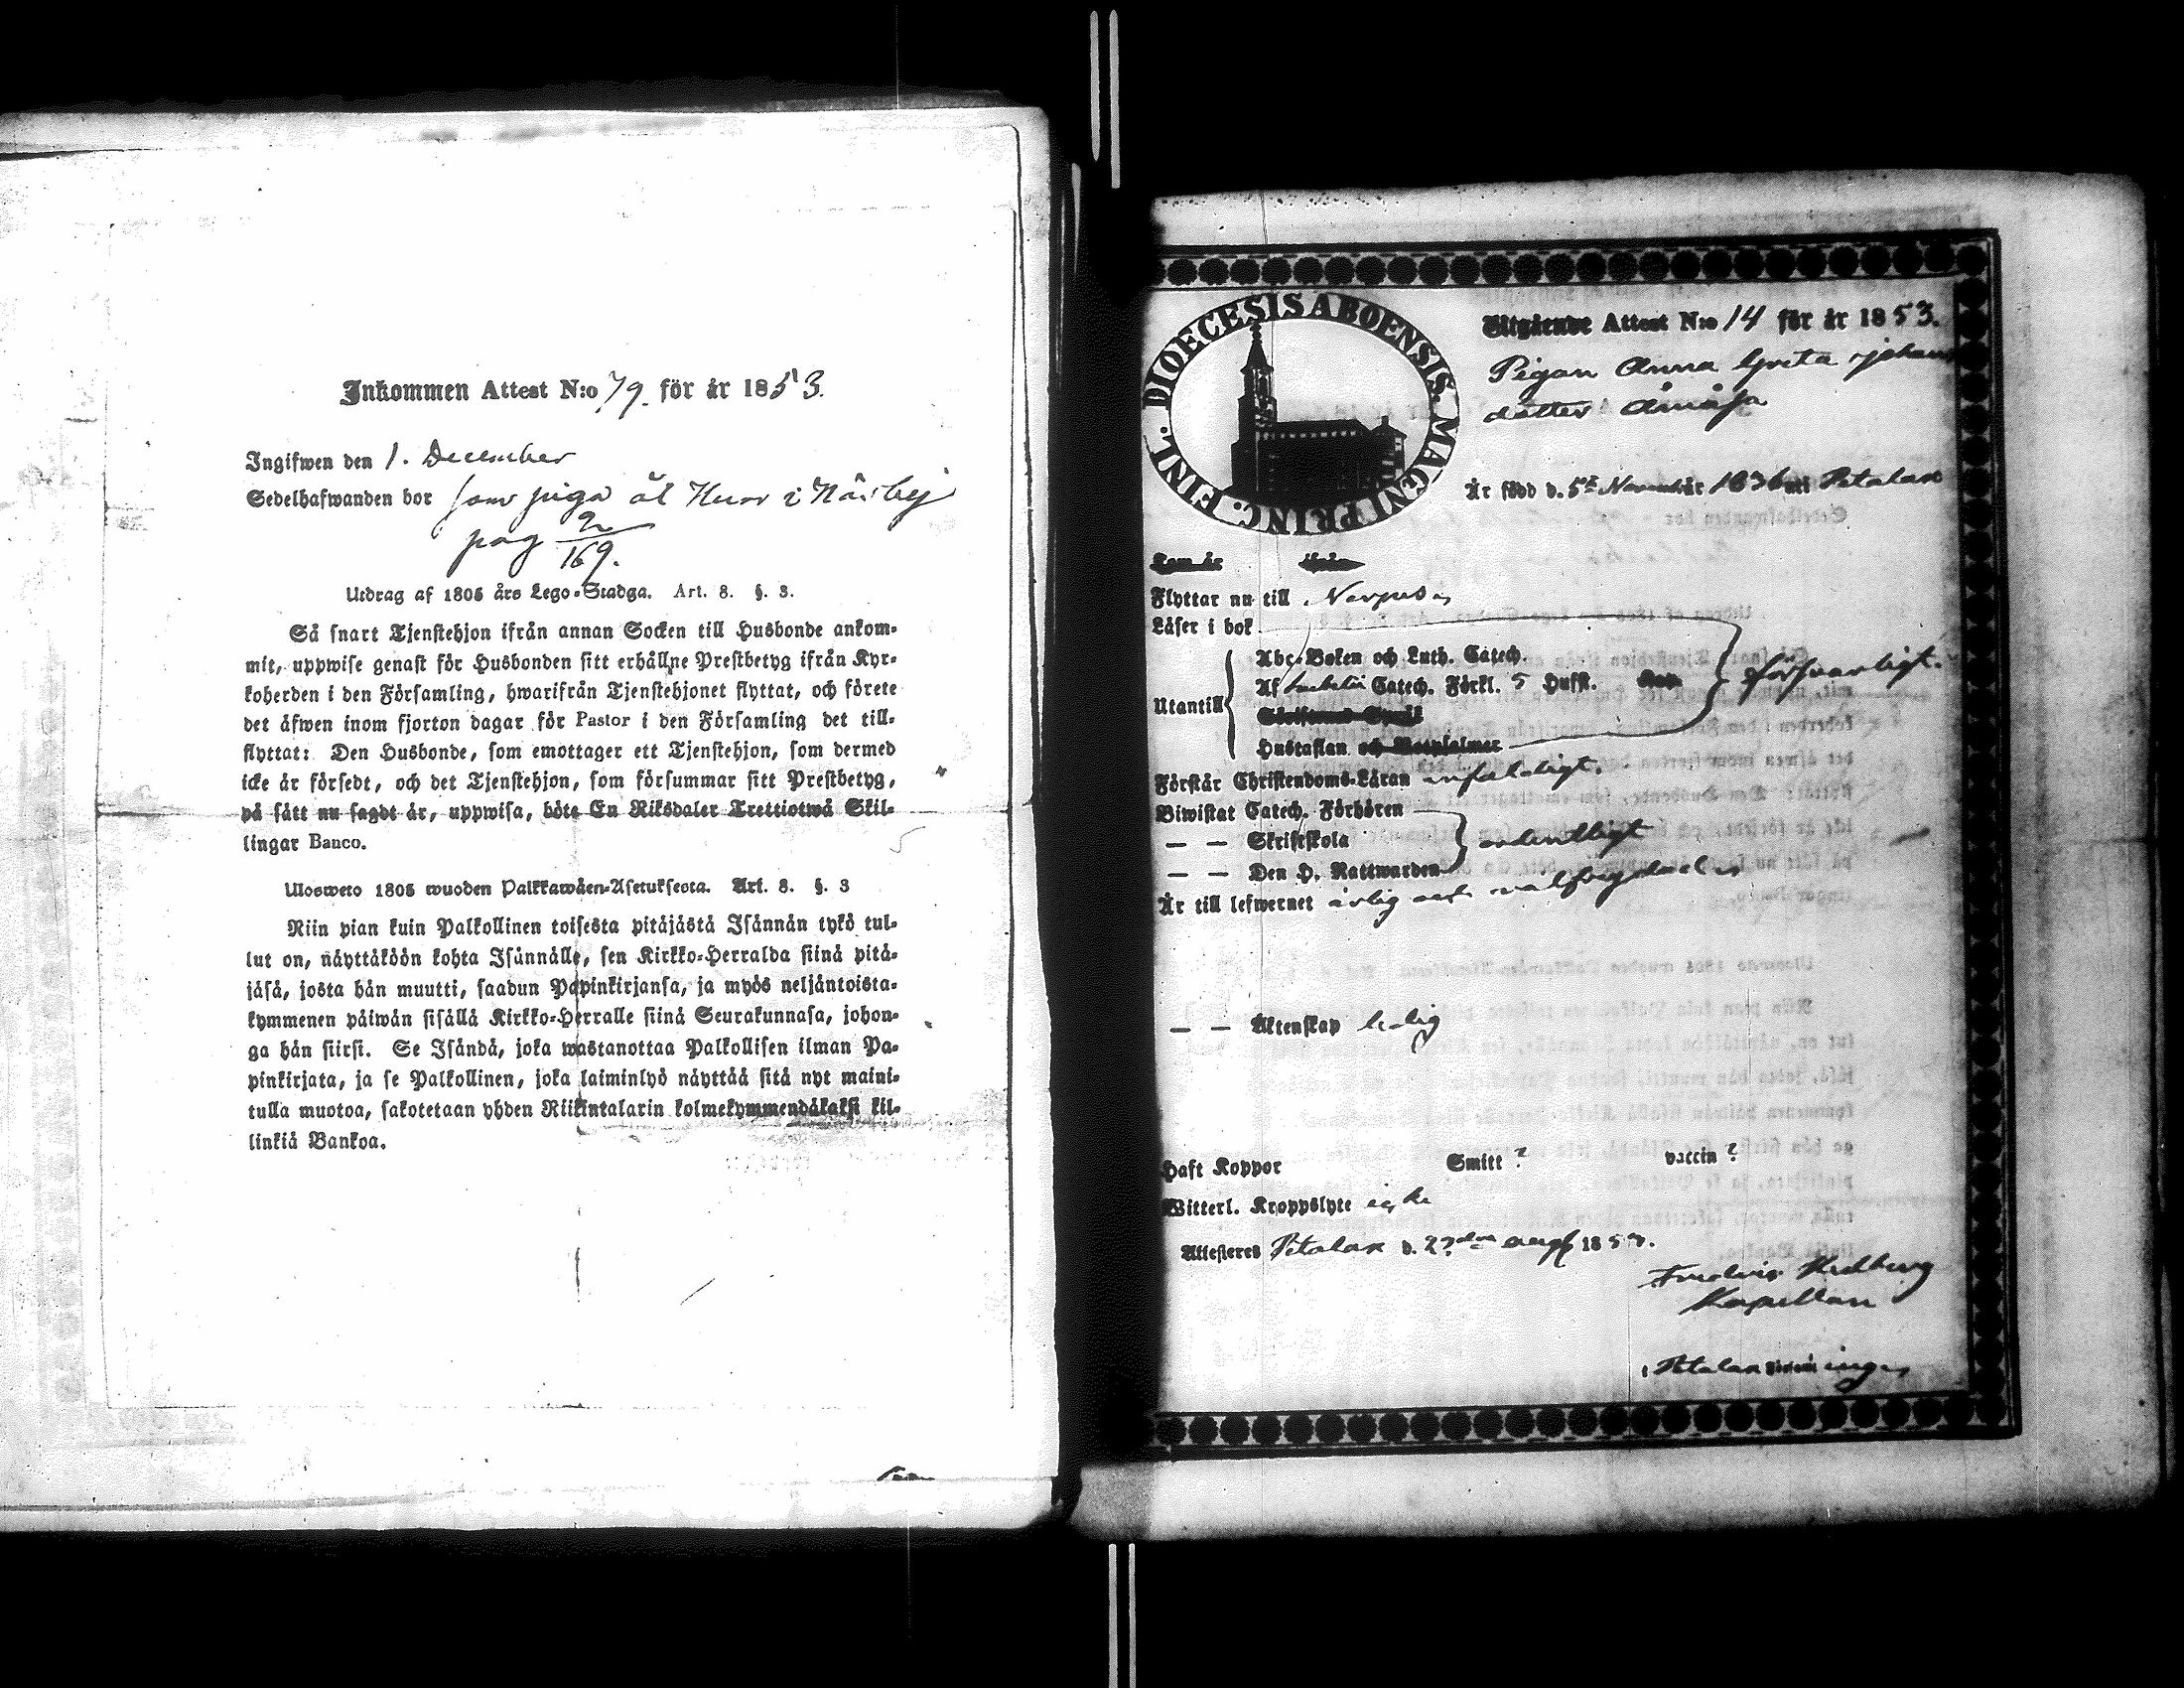 Inkommen Attest N:o 79. för år 1853.
Ingifwen den 1. December
Sedelhafwanden bor som piga åt Huso i Närbej
pag 2/169.
Utdrag af 1805 års Lego-Stadga. Art. 8. §. 3.
Så snart Tjenstehjon ifrån annan Socken till Husbonde ankom-
mit, uppwise genast för Husbonden sitt erhållne Prestbetyg ifrån Kyr-
koherden i den Församling, hwarifrån Tjenstehjonet flyttat, och förete
det äfwen inom fjorton dagar för Pastor i den Församling det till-
flyttat: Den Husbonde, som emottager ett Tjenstehjon, som dermed
icke är försedt, och det Tjenstehjon, som försummar sitt Prestbetyg,
på sätt nu sagdt är, uppwisa, böte En Riksdaler Trettiotwå Skil-
lingar Banco.
Ulosweto 1805 wuoden Palkkawäen-Asetuksesta. Art. 8. §. 3
Niin pian kuin Palkollinen toisesta pitäjästä Isännän tykö tul-
lut on, näyttäköön kohta Isännälle, sen Kirkko-Herralda siinä pitä-
jäsä, josta hän muutti, saadun Papinkirjansa, ja myös neljäntoista-
kymmenen päiwän sisällä Kirkko-Herralle siinä Seurakunnasa, johon-
ga hän siirsi. Se Isändä, joka wastanottaa Palkollisen ilman Pa-
pinkirjata, ja se Palkollinen, joka laiminlyö näyttää sitä nyt maini-
tulla muotoa, sakotetaan yhden Riikintalarin kolmekymmendäkaksi kil-
linkiä Bankoa.
DIOECESIS ABOENSIS. MAGNI PRINC. FINL.
Utgående Attest N:o 14 för år 1853.
Pigan Anna Greta Johans
dotter
Är född d. 5te November år 1836 uti Petalax
Kom år ifrån
Flyttar nu till Nerpes
Läser i bok
Utantill
Abc-Boken och Luth. Catech.
Af Catech. Förkl. 5 Hufst. Kap.
försvarligt.
Hustaflan och Botpsalmer
Förstår Christendoms-Läran enfaldigt.
Biwistat Catech. Förhören
— — Skriftskola ordentligt
— — Den H. Nattwarden
Är till lefwernet ärlig och välfrejdad
— — Äktenskap ledig
Haft Koppor Smitt ? vaccin ?
Witterl. Kroppslyte icke
Attesteras Petalax d. 27de Aug 1853.
Fredric Hedberg
Kapellan
i Petalax